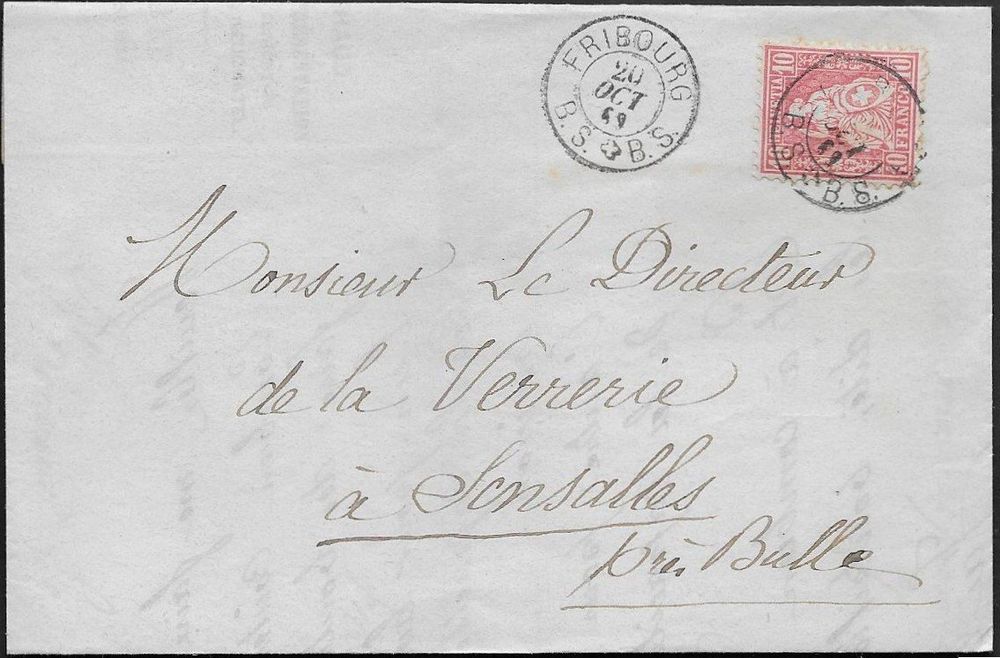 FRIBOURG
20
OCT
69
B. S. B. S.
10 10
HELVETIA FRANCO
10 10
B. S. B. S.
Monsieur Le Directeur
de la Verrerie
à Sensalles
près Bulle